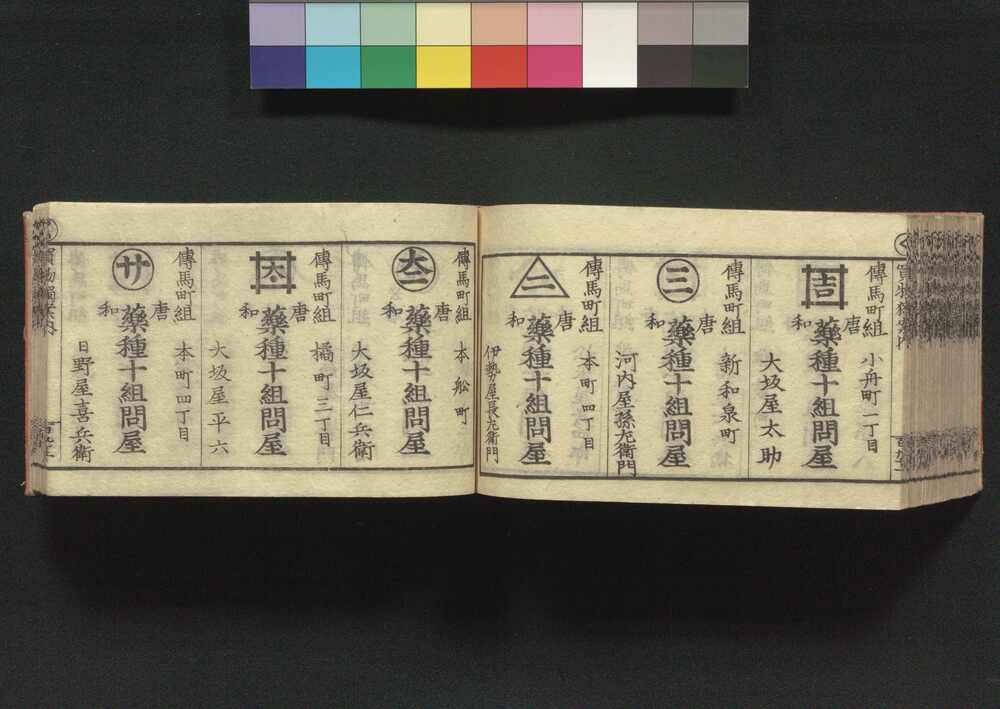 傳馬町組 小舟町一丁目
吉
唐和 藥種十組問屋
大坂屋太助
傳馬町組 新和泉町
三
唐和 藥種十組問屋
河内屋孫左衛門
傳馬町組 本町四丁目
二
唐和 藥種十組問屋
伊勢屋長左衛門
傳馬町組 本舩町
唐和 藥種十組問屋
大坂屋仁兵衛
傳馬町組 橘町三丁目
唐和 藥種十組問屋
大坂屋平六
傳馬町組 本町四丁目
サ
唐和 藥種十組問屋
日野屋喜兵衛